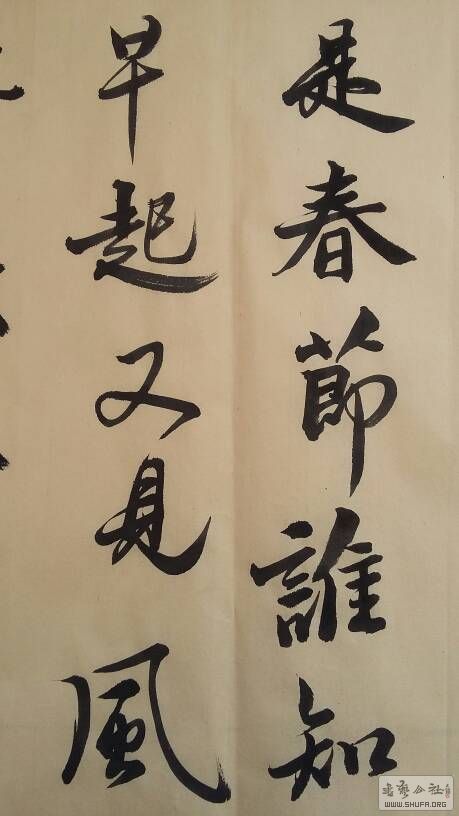 是春節誰知
早起又見風
WWW.SHUFA.ORG